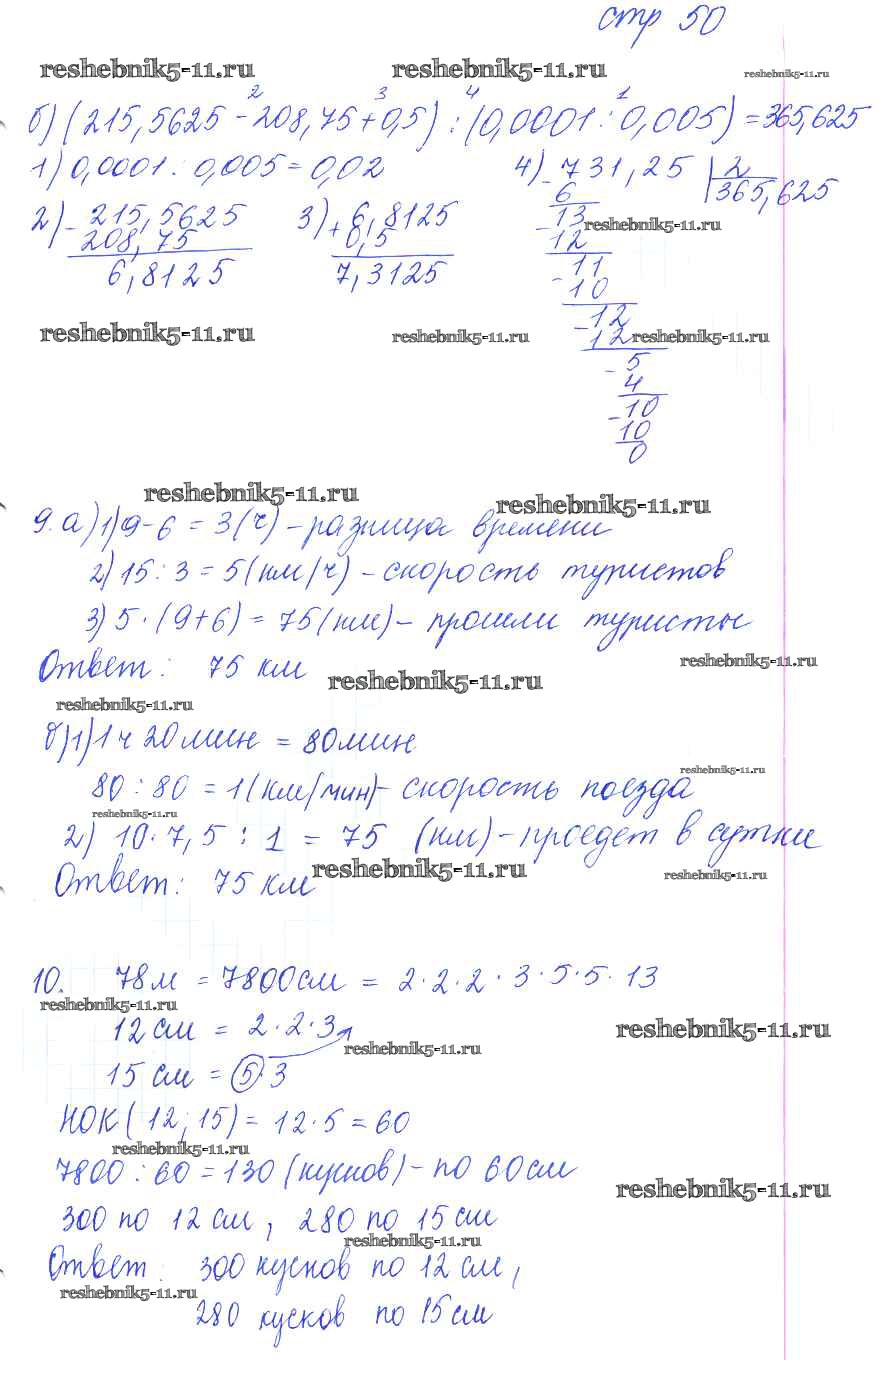 стр 50
reshebnik5-11.ru reshebnik5-11.ru reshebnik5-11.ru
2 3 4 1
б) (215,5625 - 208,75 + 0,5) : (0,0001 : 0,005) = 365,625
1) 0,0001 : 0,005 = 0,02
4) - 731,25 | 2
6 365,625
2) - 215,5625 3) + 6,8125 - 13 reshebnik5-11.ru
208,75 0,5 12
6,8125 7,3125 - 11
10
- 12
reshebnik5-11.ru reshebnik5-11.ru 12 reshebnik5-11.ru
- 5
4
- 10
10
0
reshebnik5-11.ru reshebnik5-11.ru
9. а) 1) 9 - 6 = 3 (ч) - разница времени
2) 15 : 3 = 5 (км/ч) - скорость туристов
3) 5 · (9 + 6) = 75 (км) - прошли туристы
Ответ: 75 км reshebnik5-11.ru reshebnik5-11.ru
reshebnik5-11.ru
б) 1) 1 ч 20 мин = 80 мин
reshebnik5-11.ru
80 : 80 = 1 (км/мин) - скорость поезда
reshebnik5-11.ru
2) 10 · 7,5 : 1 = 75 (км) - проедет в сутки
Ответ: 75 км reshebnik5-11.ru reshebnik5-11.ru
10. 78 м = 7800 см = 2 · 2 · 2 · 3 · 5 · 5 · 13
reshebnik5-11.ru
12 см = 2 · 2 · 3 reshebnik5-11.ru
reshebnik5-11.ru
15 см = 5 · 3
НОК (12; 15) = 12 · 5 = 60
reshebnik5-11.ru
7800 : 60 = 130 (кусков) - по 60 см
reshebnik5-11.ru
300 по 12 см, 280 по 15 см
reshebnik5-11.ru
Ответ: 300 кусков по 12 см,
reshebnik5-11.ru
280 кусков по 15 см